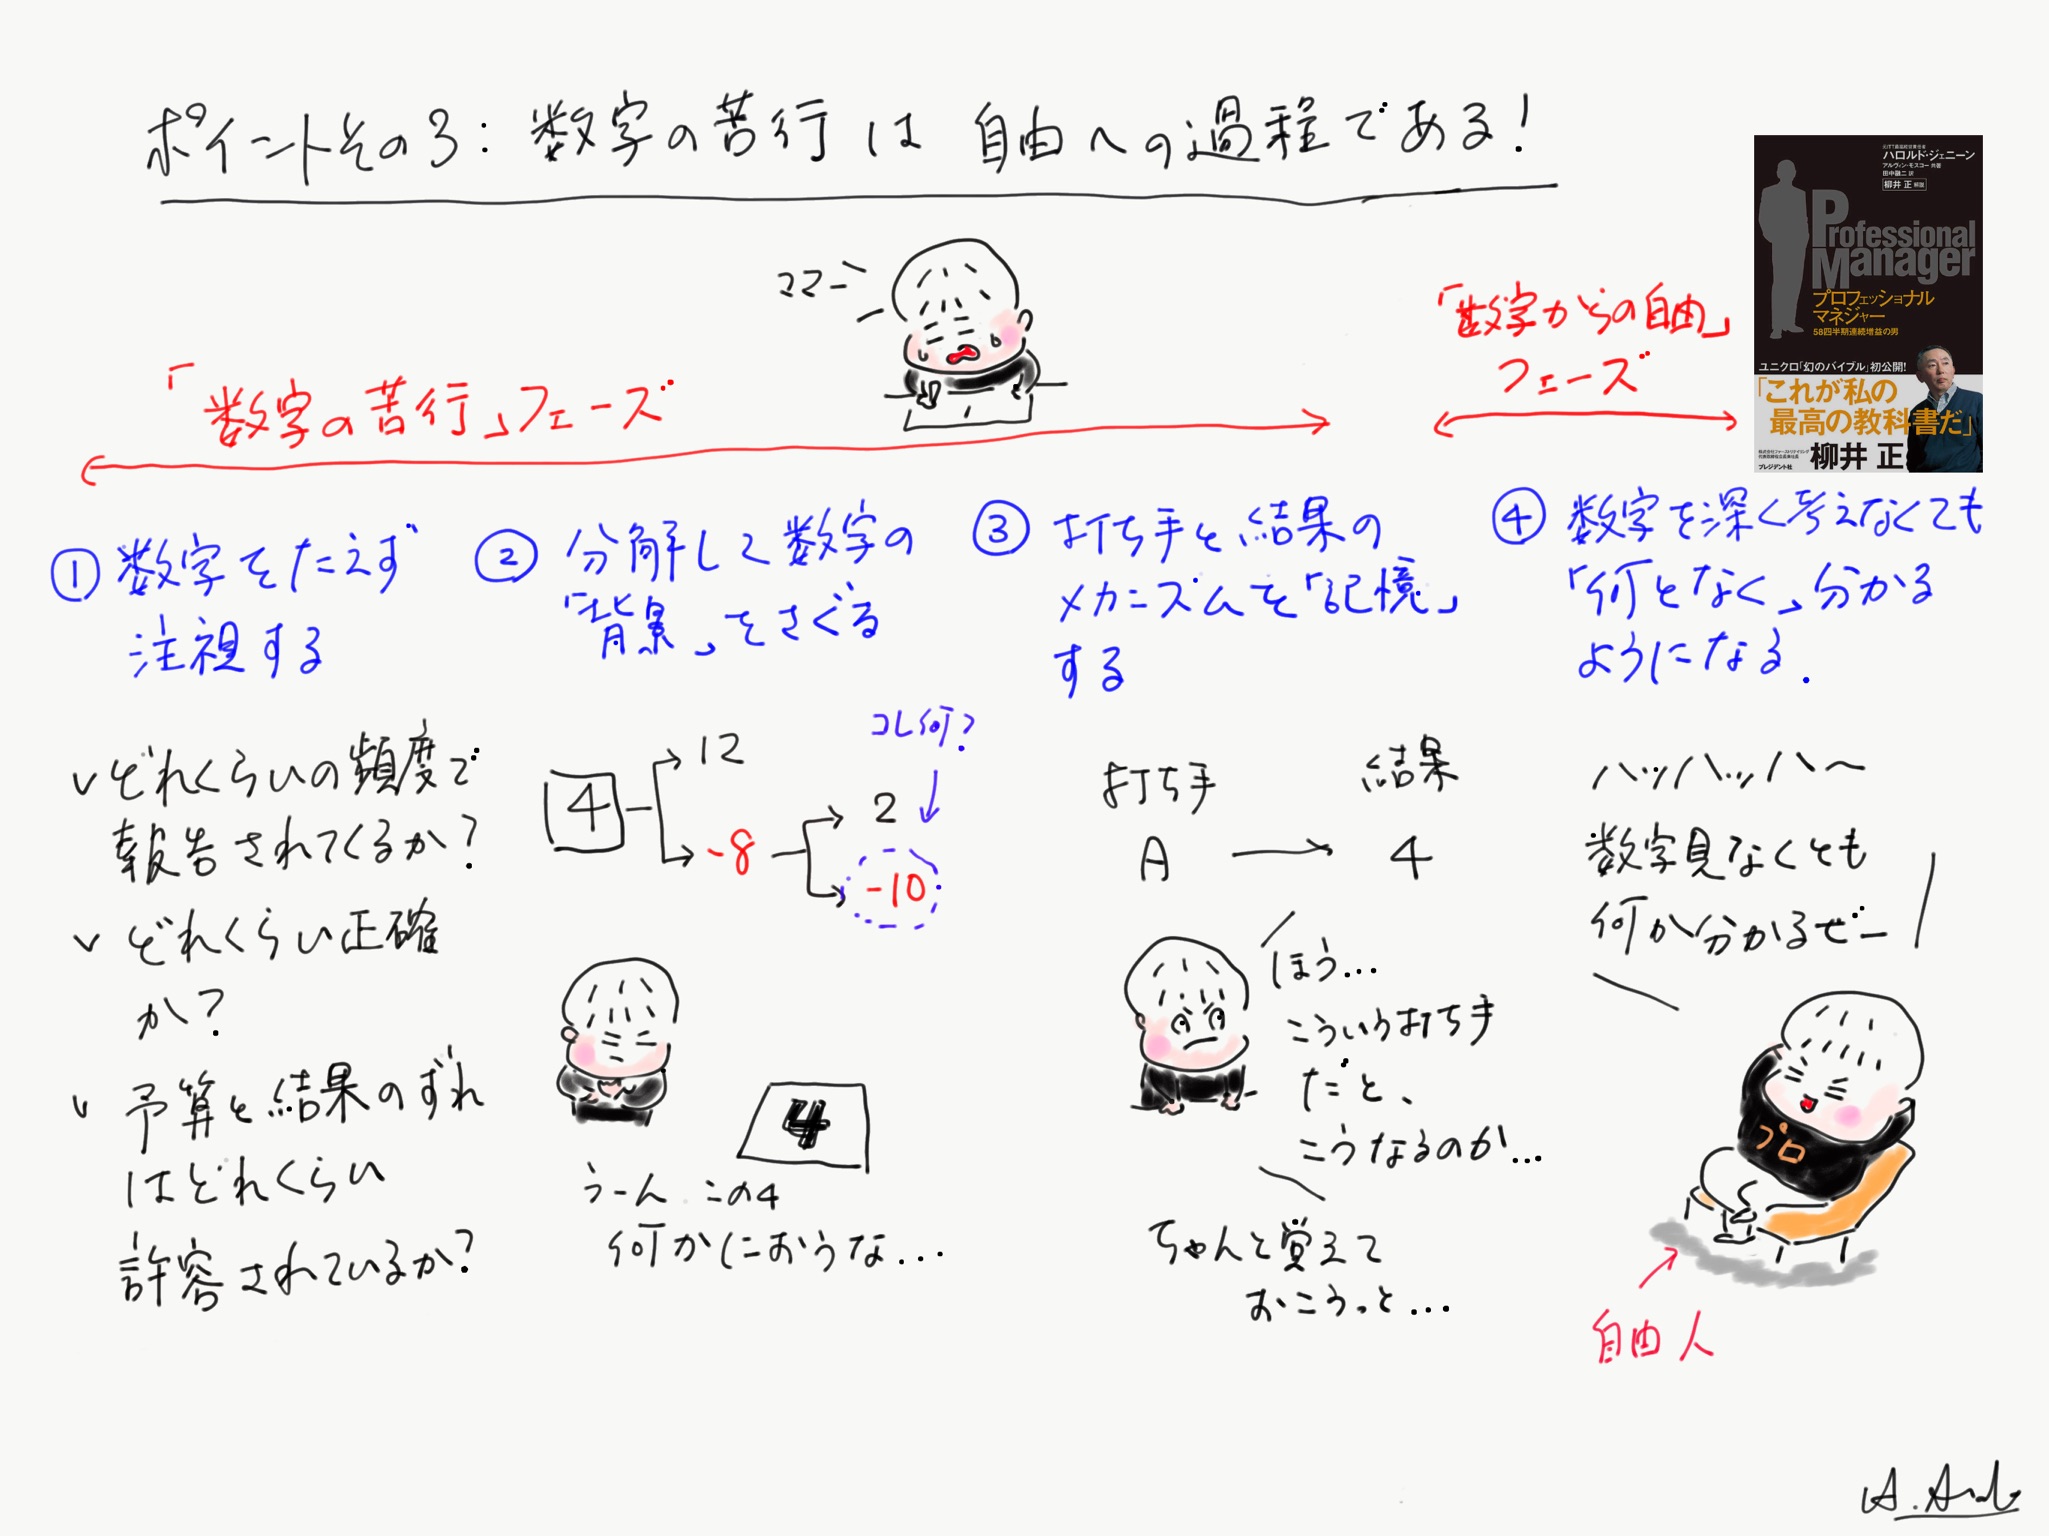 ポイントその3：数字の苦行は自由への過程である！
元ITT最高経営責任者
ハロルド・ジェニーン
アルヴィン・モスコー 共著
田中融二 訳
柳井 正 解説
Professional
Manager
プロフェッショナル
マネジャー
58四半期連続増益の男
ユニクロ「幻のバイブル」初公開!
「これが私の
最高の教科書だ」
株式会社ファーストリテイリング
代表取締役会長兼社長
柳井 正
プレジデント社
ママー
「数字の苦行」フェーズ
「数字からの自由」
フェーズ
① 数字をたえず
注視する
∨どれくらいの頻度で
報告されてくるか？
∨どれくらい正確
か？
∨予算と結果のずれ
はどれくらい
許容されているか？
② 分解して数字の
「背景」をさぐる
コレ何？
4
12
-8
2
-10
4
うーん この4
何かにおうな...
③ 打ち手と結果の
メカニズムを「記憶」
する
打ち手 結果
A → 4
ほう...
こういう打ち手
だと、
こうなるのか...
ちゃんと覚えて
おこうっと...
④ 数字を深く考えなくても
「何となく」分かる
ようになる.
ハッハッハ〜
数字見なくとも
何か分かるぜー
プロ
自由人